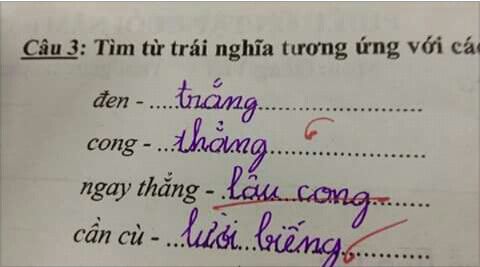 Câu 3: Tìm từ trái nghĩa tương ứng với các
đen - ....trắng..............................
cong - ...thẳng............................
ngay thẳng - .lâu cong...............
cần cù - ...lười biếng................